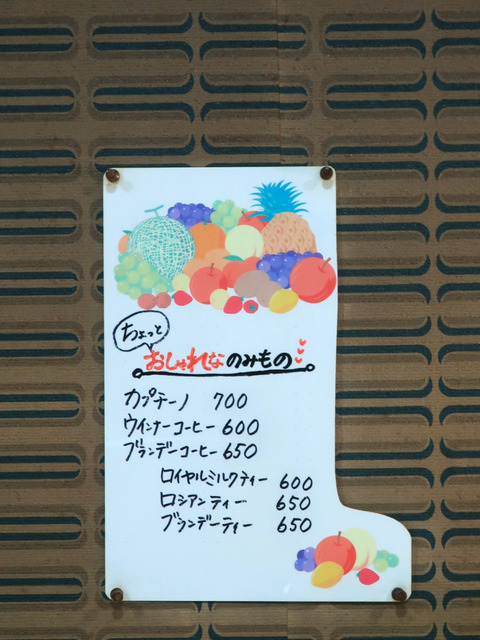 ちょっと
おしゃれなのみもの
カプチーノ 700
ウインナーコーヒー 600
ブランデーコーヒー 650
ロイヤルミルクティー 600
ロシアンティー 650
ブランデーティー 650